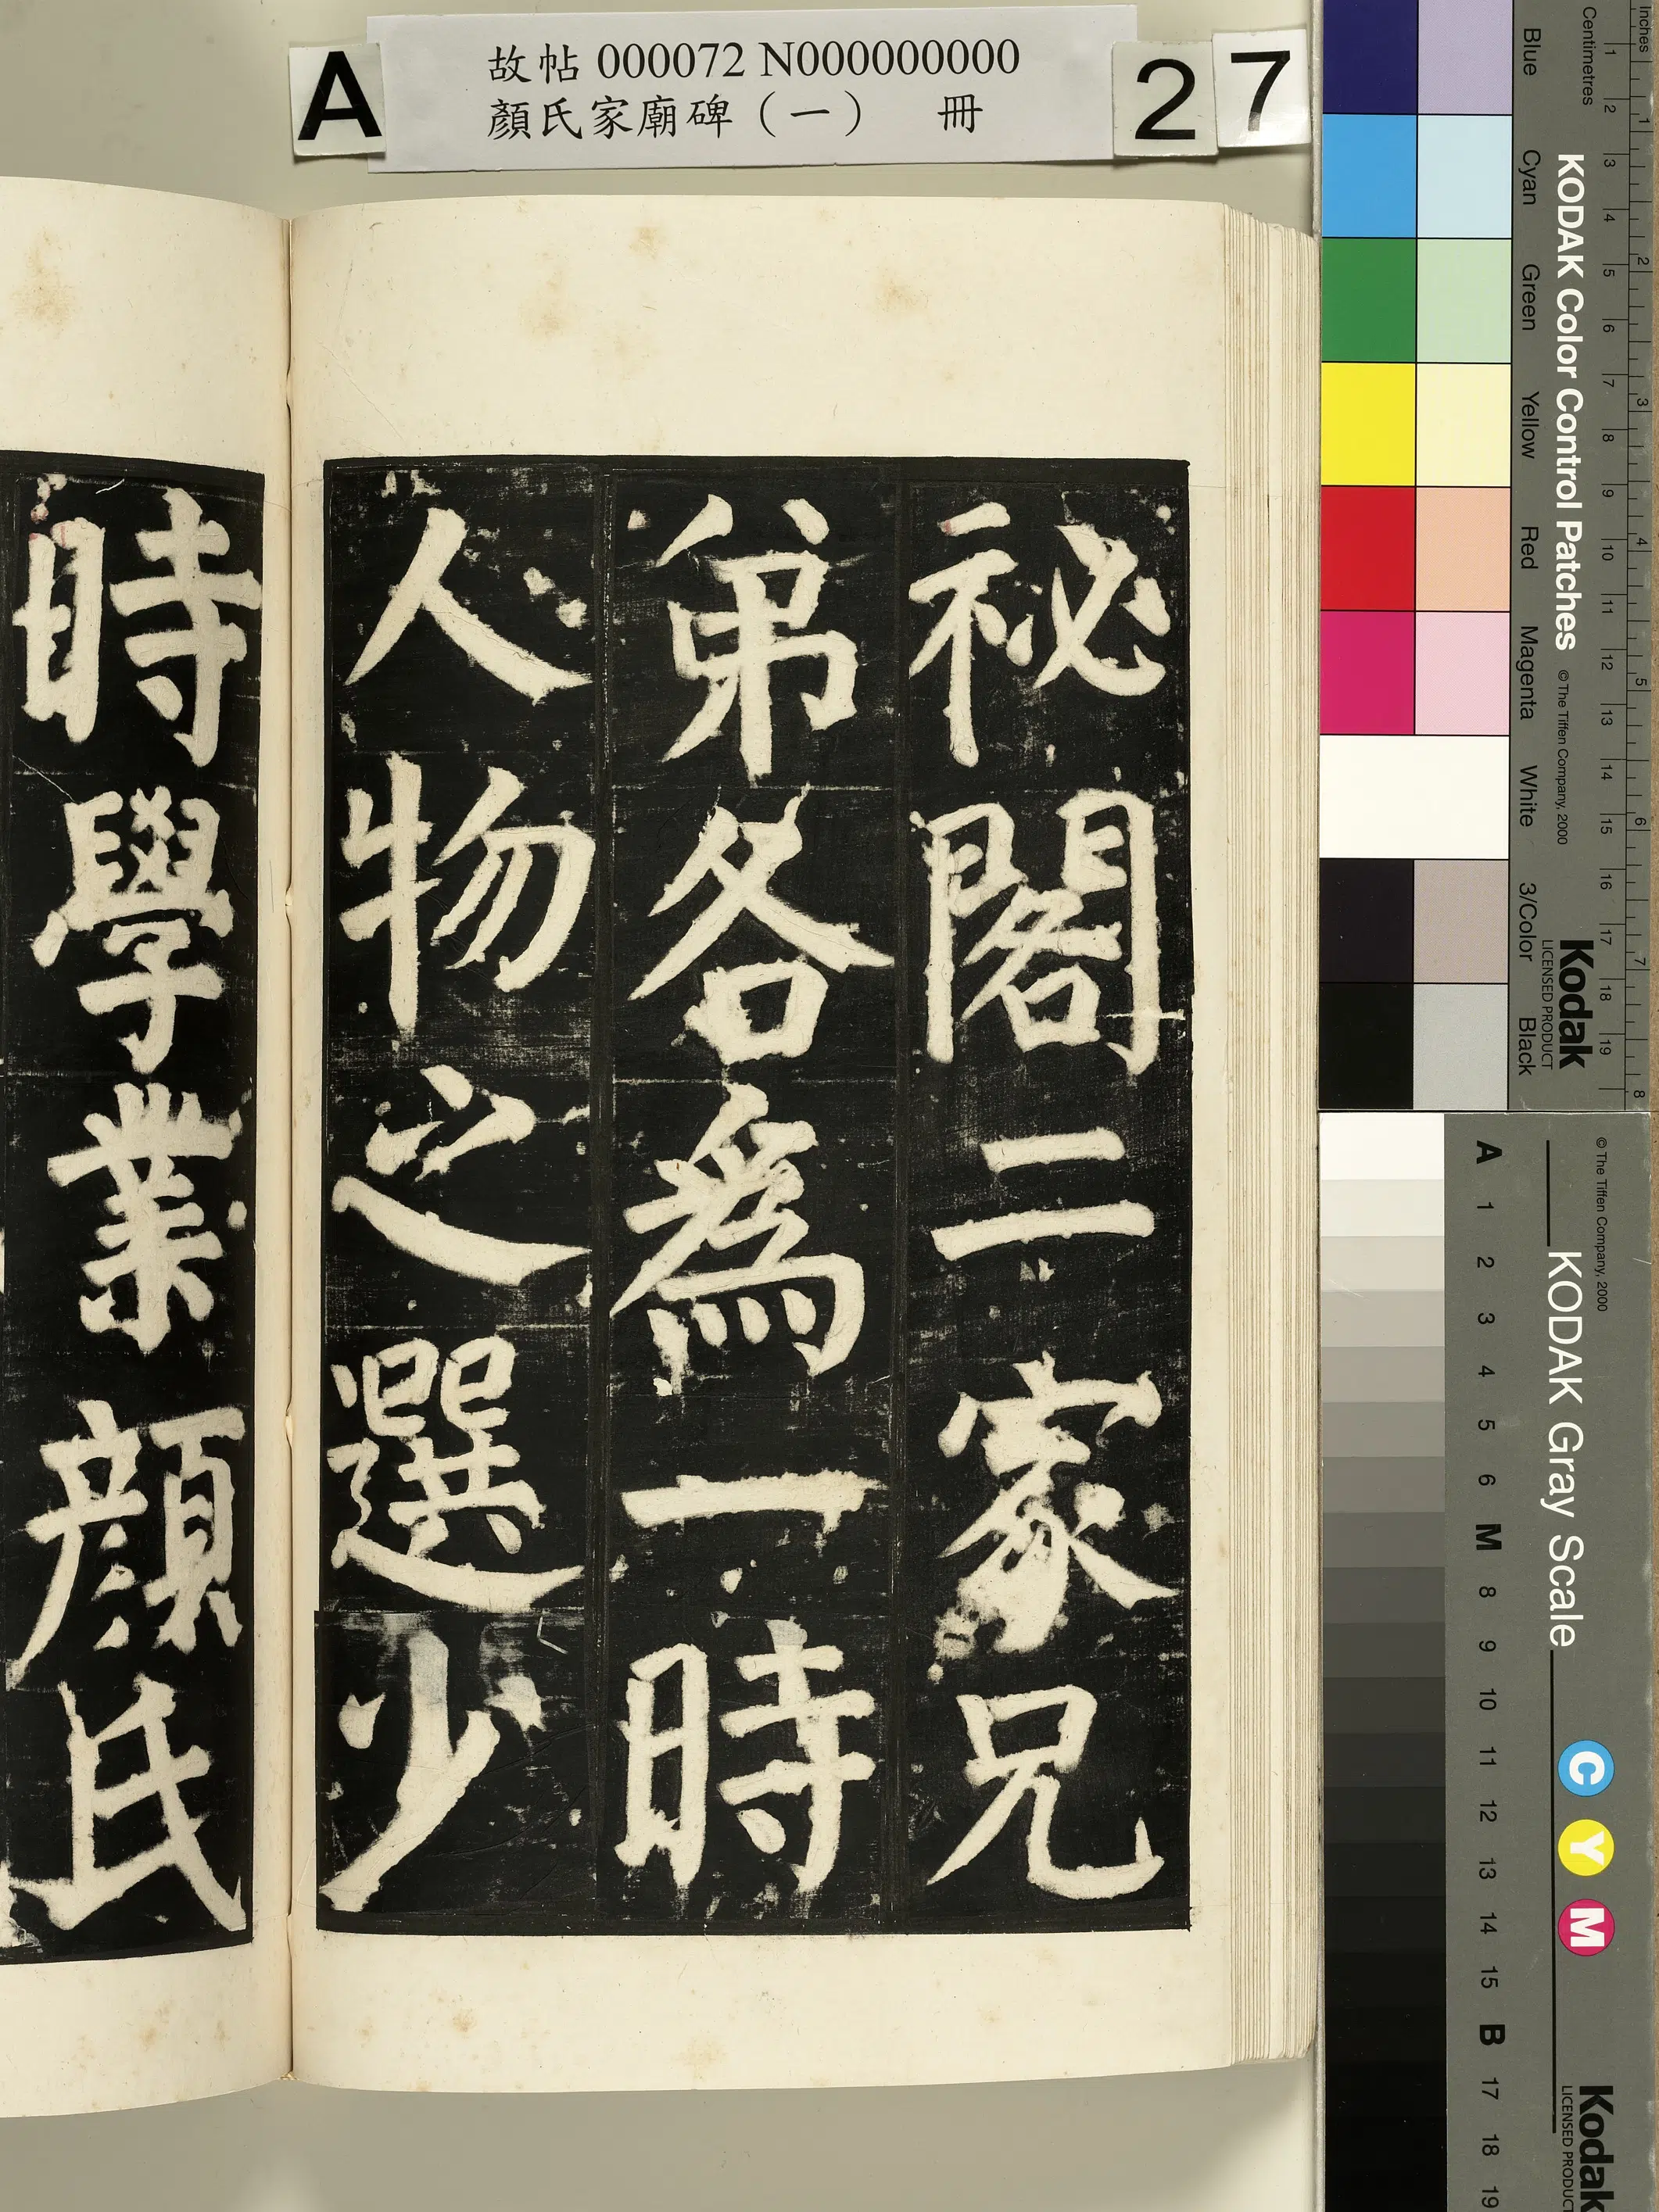 A
故帖 000072 N000000000
顏氏家廟碑（一） 冊
2 7
祕閣二家兄
弟各為一時
人物之選少
時學業顏氏
Inches
1 2 3 4 5 6 7 8
Centimetres
1 2 3 4 5 6 7 8 9 10 11 12 13 14 15 16 17 18 19
KODAK Color Control Patches
© The Tiffen Company, 2000
Kodak
LICENSED PRODUCT
Blue Cyan Green Yellow Red Magenta White 3/Color Black
© The Tiffen Company, 2000
KODAK Gray Scale
C Y M
Kodak
LICENSED PRODUCT
A 1 2 3 4 5 6 M 8 9 10 11 12 13 14 15 B 17 18 19